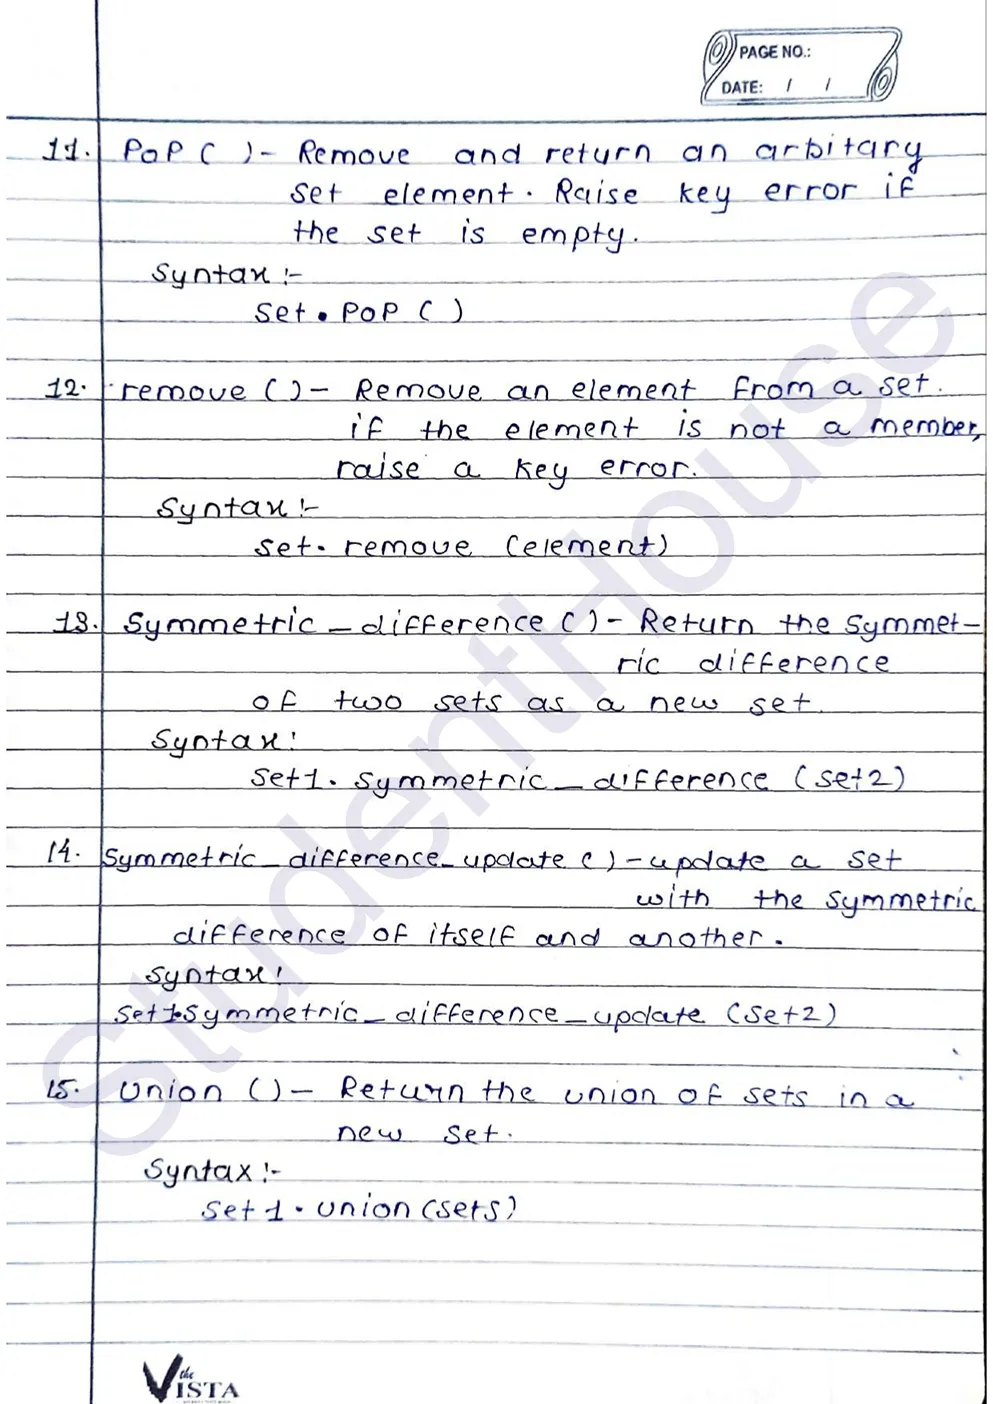 PAGE NO.:
DATE: / /
11. PoP ( ) - Remove and return an arbitary
set element. Raise key error if
the set is empty.
Syntax :-
set. PoP ( )
12. remove ( ) - Remove an element from a set.
if the element is not a member,
raise a key error.
Syntax :-
set. remove (element)
13. Symmetric_difference ( ) - Return the symmet-
ric difference
of two sets as a new set.
Syntax :
set1. symmetric_difference (set2)
14. Symmetric_difference_update ( ) - update a set
with the symmetric
difference of itself and another.
syntax :
set1.symmetric_difference_update (set2)
15. Union ( ) - Return the union of sets in a
new set.
Syntax :-
set1. union (sets)
StudentHouse
the VISTA